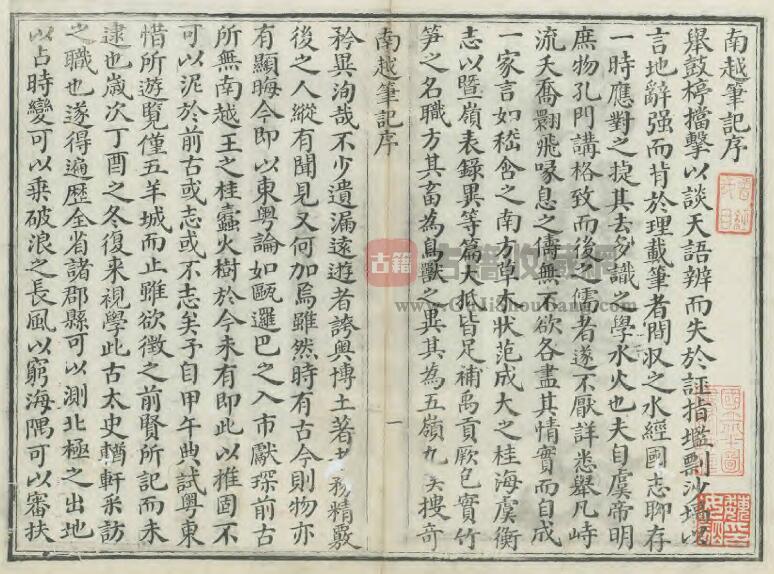 南越筆記序
舉鼓桴擋擊以談天語辨而失於誣指壒剽沙壇以
言地辭强而背於理載筆者間収之水經國志聊存
一時應對之捷其去多識之學水火也夫自虞帝明
庶物孔門講格致而後之儒者遂不厭詳悉舉凡峙
流夭喬翾飛喙息之儔無不欲各盡其情實而自成
一家言如嵇含之南方草木狀范成大之桂海虞衡
志以暨嶺表錄異等篇大抵皆足補禹貢厥包實竹
笋之名職方其畜為鳥獸之異其為五嶺九真搜奇
南越筆記序
一
矜異洵哉不少遺漏遠遊者誇輿博土著者務精覈
後之人縱有聞見又何加焉雖然時有古今則物亦
有顯晦今即以東粵論如甌邏巴之入市獻琛前古
所無南越王之桂蠹火樹於今未有即此以推固不
可以泥於前古或志或不志矣予自甲午典試粵東
惜所遊覽僅五羊城而止雖欲徵之前賢所記而未
逮也歲次丁酉之冬復來視學此古太史輶軒采訪
之職也遂得遍歷全省諸郡縣可以測北極之出地
以占時變可以乘破浪之長風以窮海隅可以審扶
古籍
古籍收藏網
www.GuJiShouCang.com